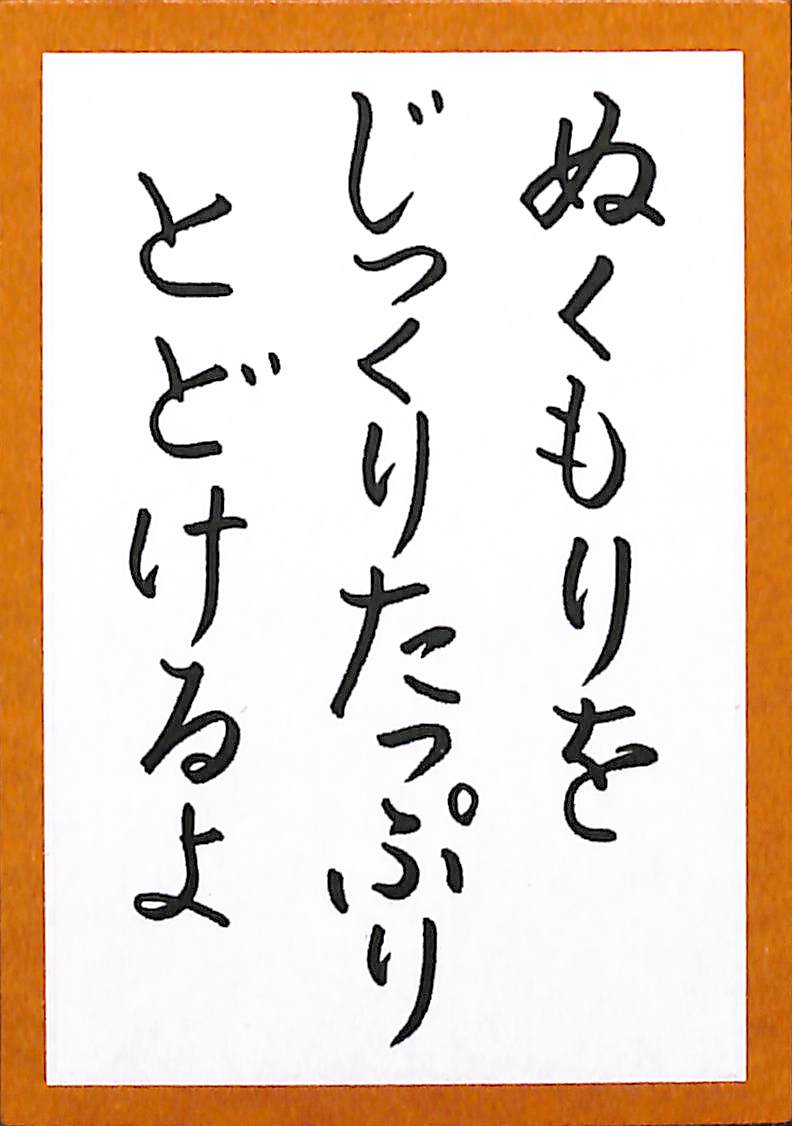 ぬくもりを
じっくりたっぷり
とどけるよ